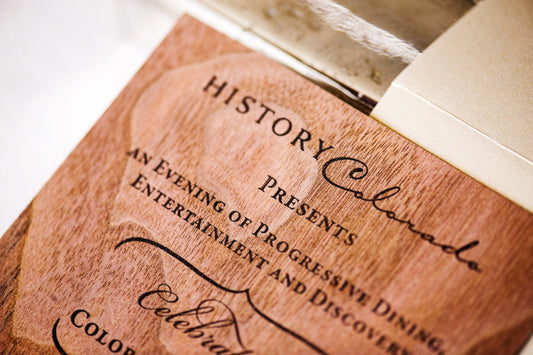 HISTORY Colorado
PRESENTS
AN EVENING OF PROGRESSIVE DINING,
ENTERTAINMENT AND DISCOVERY